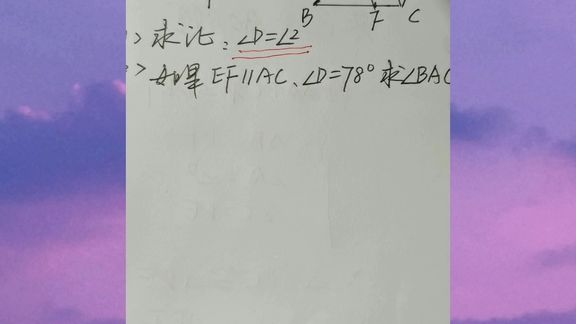 B F C
1> 求证:∠D=∠2
2> 如果EF∥AC、∠D=78°求∠BAC